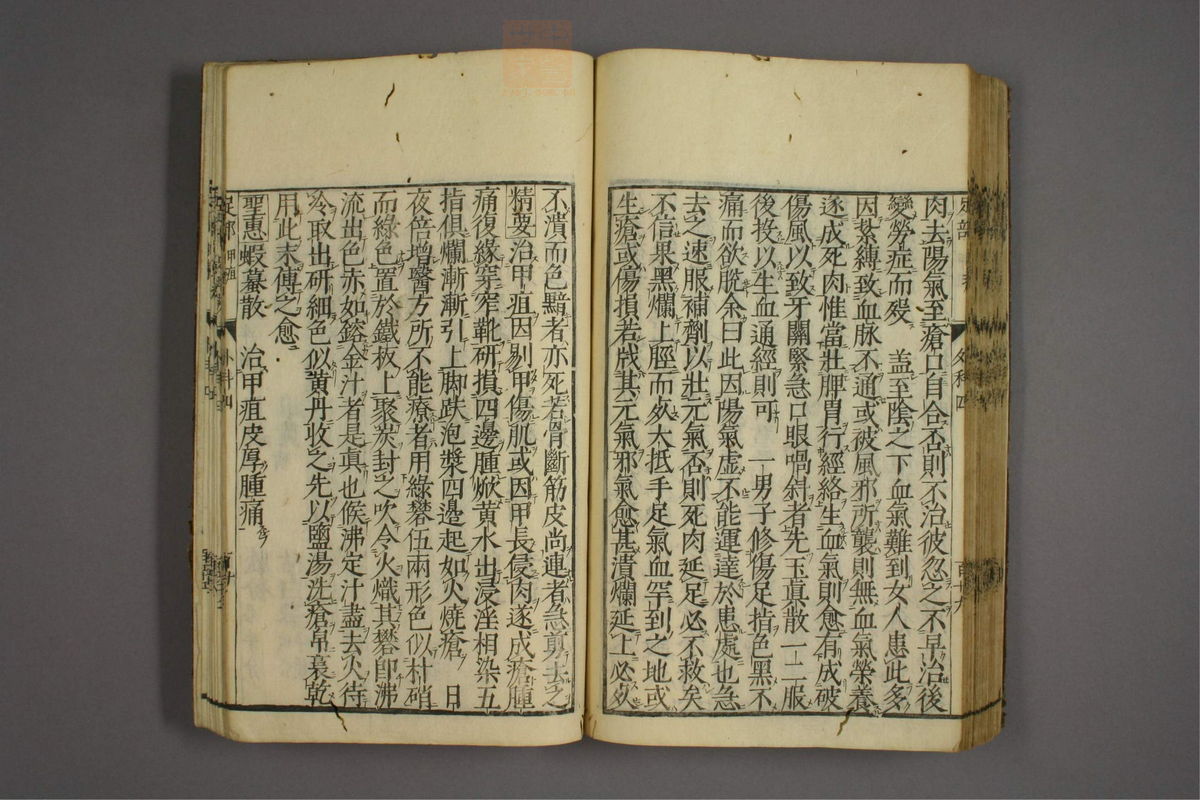 肉去陽氣至瘡口自合否則不治彼忽之不早治後
變勞症而歿　蓋至陰之下血氣難到女人患此多
因紥縛致血脉不通或被風邪所襲則無血氣榮養
遂成死肉惟當壮脾胃行經絡生血氣則愈有成破
傷風以致牙關緊急口眼喎斜者先玉真散一二服
後投以生血通經則可　一男子修傷足指色黑不
痛而欲脫余曰此因陽氣虛不能運達於患處也急
去之速服補劑以壯元氣否則死肉延足必不救矣
不信果黑爛上脛而歿大抵手足氣血罕到之地或
生瘡或傷損若戕其元氣邪氣愈甚潰爛延上必歿
不潰而色黯者亦死若骨斷筋皮尚連者急剪去之
精要治甲疽因剔甲傷肌或因甲長侵肉遂成瘡腫
痛復緣穿窄靴研損四邊腫焮黄水出浸淫相染五
指俱爛漸漸引上脚趺泡漿四邊起如火燒瘡　日
夜倍增醫方所不能療者用綠礬伍兩形色似朴硝
而綠色置於鐵板上聚炭封之吹令火熾其礬即沸
流出色赤如鎔金汁者是真也候沸定汁盡去火待
冷取出研細色似黄丹收之先以鹽湯洗瘡帛裛乾
用此末傅之愈
聖惠蝦蟇散　治甲疽皮厚腫痛
足部　甲疽
外科四